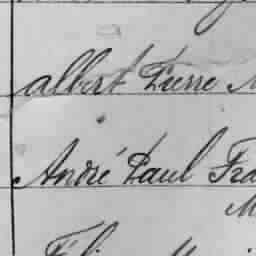 Albert Pierre M
André Paul Fra
M
Féli